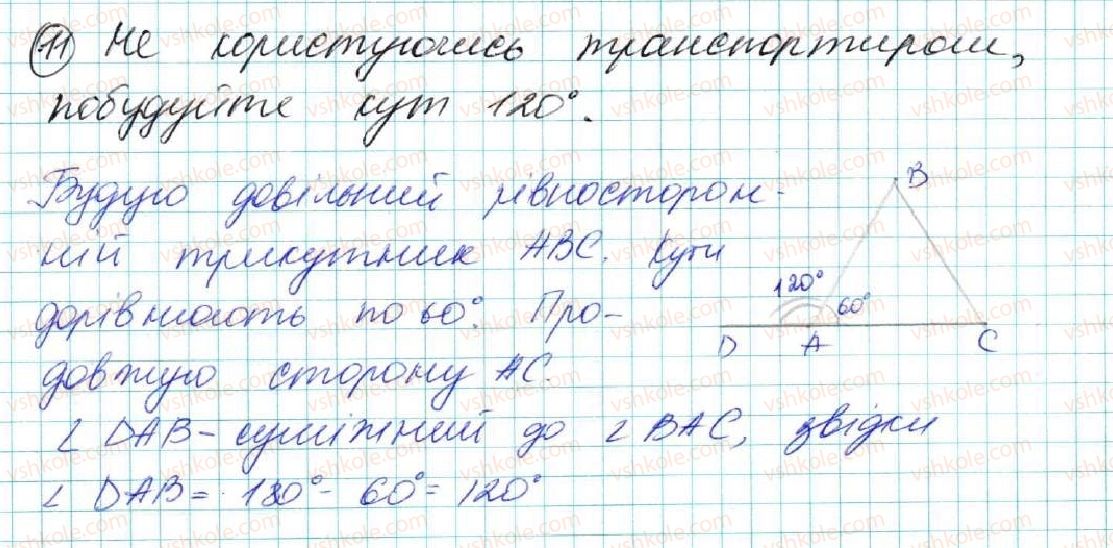 11 Не користуючись транспортиром,
побудуйте кут 120°.
Будую довільний рівносторон-
ній трикутник ABC. Кути
дорівнюють по 60°. Про-
довжую сторону AC.
∠ DAB - суміжний до ∠ BAC, звідки
∠ DAB = 180° - 60° = 120°
B
120°
60°
D A C
vshkole.com